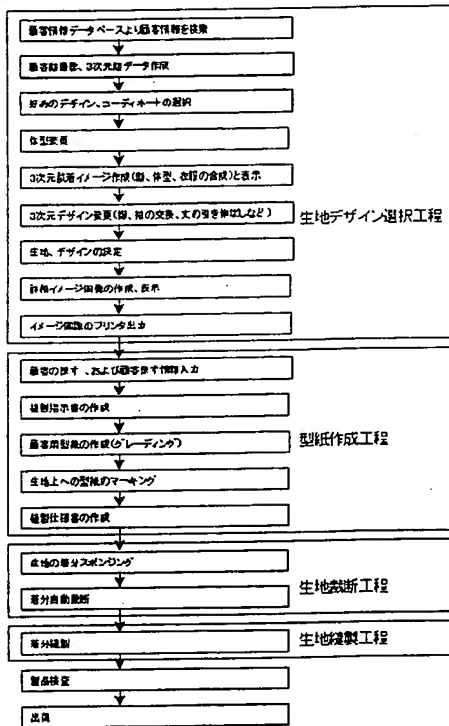 顧客情報データベースより顧客情報を検索
顧客顔撮影、3次元顔データ作成
好みのデザイン、コーディネートの選択
体型変更
3次元試着イメージ作成(顔、体型、衣服の合成)と表示
3次元デザイン変更(襟、袖の交換、丈の引き伸ばしなど)
生地デザイン選択工程
生地、デザインの決定
詳細イメージ画像の作成、表示
イメージ画像のプリンタ出力
顧客の採寸、および顧客採寸情報入力
縫製指示書の作成
顧客用型紙の作成(グレーディング)
型紙作成工程
生地上への型紙のマーキング
縫製仕様書の作成
生地の着分スポンジング
着分自動裁断
生地裁断工程
着分縫製
生地縫製工程
製品検査
出荷